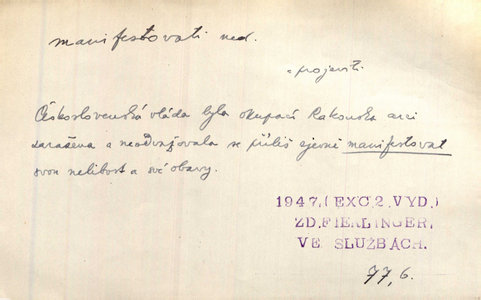 manifestovati ned.
= projeviti.
Československá vláda byla okupací Rakouska arci
zaražena a neodvažovala se příliš zjevně manifestovat
svou nelibost a své obavy.
1947.(EXC.2.VYD.)
ZD.FIERLINGER,
VE SLUŽBÁCH.
77,6.